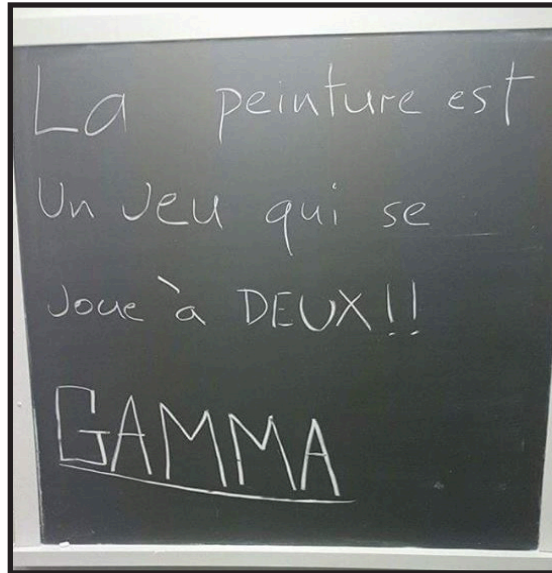 La peinture est
Un Jeu qui se
Joue à DEUX!!
GAMMA